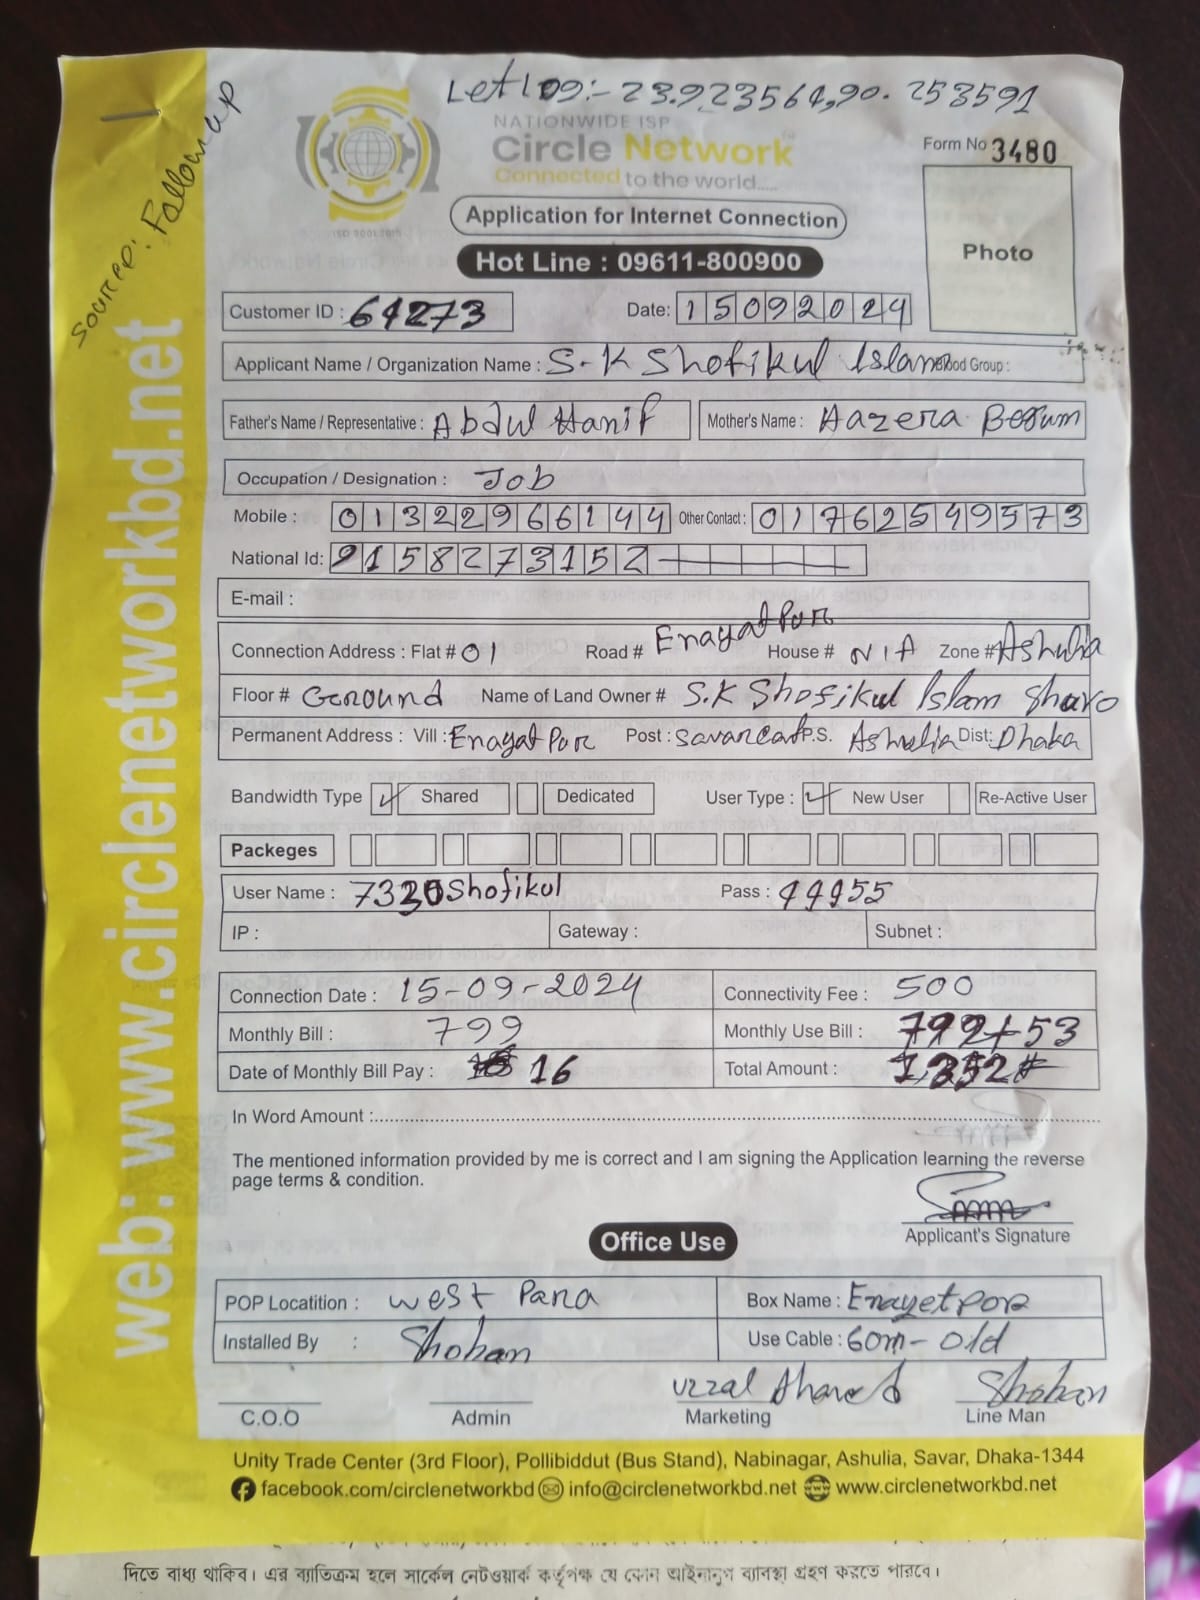 Let log:- 23.923564,90.253591
Source: Follow up
NATIONWIDE ISP
Circle Network
Connected to the world.....
ISO 9001:2015
Form No 3480
Application for Internet Connection
Photo
Hot Line : 09611-800900
Customer ID : 64273 Date: 15092024
Applicant Name / Organization Name : S.K Shofikul Islam Blood Group :
Father's Name / Representative : Abdul Hanif Mother's Name : Hazera Begum
Occupation / Designation : Job
Mobile : 01322966144 Other Contact : 01762549573
National Id: 9158273152
E-mail :
Connection Address : Flat # 01 Road # Enayatpur House # N/A Zone # Ashulia
Floor # Ground Name of Land Owner # S.K Shofikul Islam
Permanent Address : Vill : Enayatpur Post : Savarcant P.S. Ashulia Dist: Dhaka
Bandwidth Type Shared Dedicated User Type : New User Re-Active User
Packeges
User Name : 7320Shofikul Pass : 44455
IP : Gateway : Subnet :
Connection Date : 15-09-2024 Connectivity Fee : 500
Monthly Bill : 799 Monthly Use Bill : 799+53
Date of Monthly Bill Pay : 16 Total Amount : 1352#
In Word Amount :
The mentioned information provided by me is correct and I am signing the Application learning the reverse
page terms & condition.
Applicant's Signature
Office Use
POP Locatition : West Para Box Name : Enayetpor
Installed By : Shohan Use Cable : 60m-old
Uzzal Shohan
C.O.O Admin Marketing Line Man
Unity Trade Center (3rd Floor), Pollibiddut (Bus Stand), Nabinagar, Ashulia, Savar, Dhaka-1344
facebook.com/circlenetworkbd info@circlenetworkbd.net www.circlenetworkbd.net
web: www.circlenetworkbd.net
দিতে বাধ্য থাকিব। এর ব্যতিক্রম হলে সার্কেল নেটওয়ার্ক কর্তৃপক্ষ যে কোন আইনানুগ ব্যাবস্থা গ্রহণ করতে পারবে।